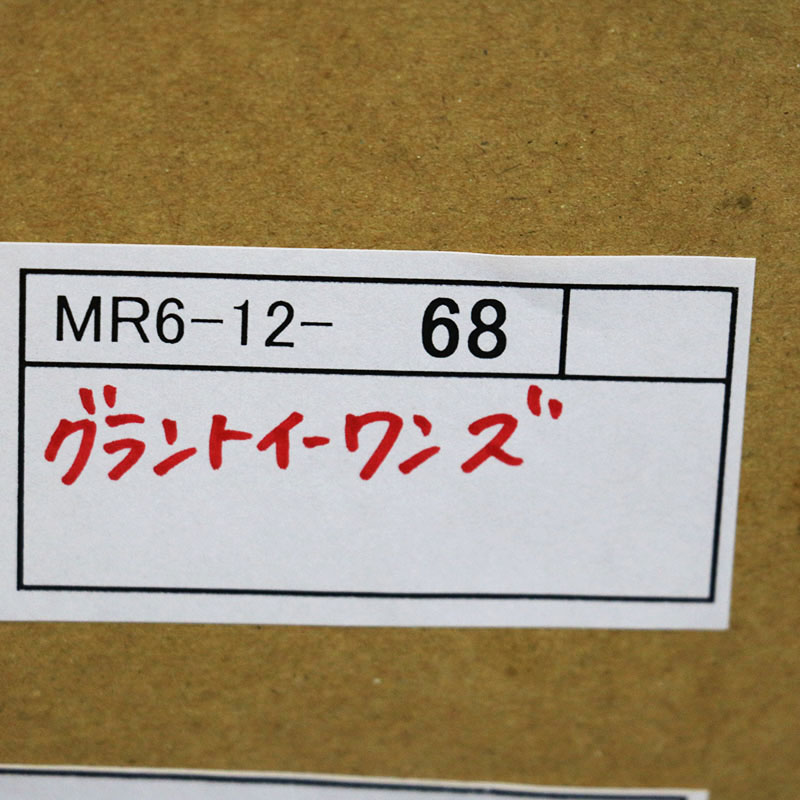 MR6-12- 68
グラントイーワンズ